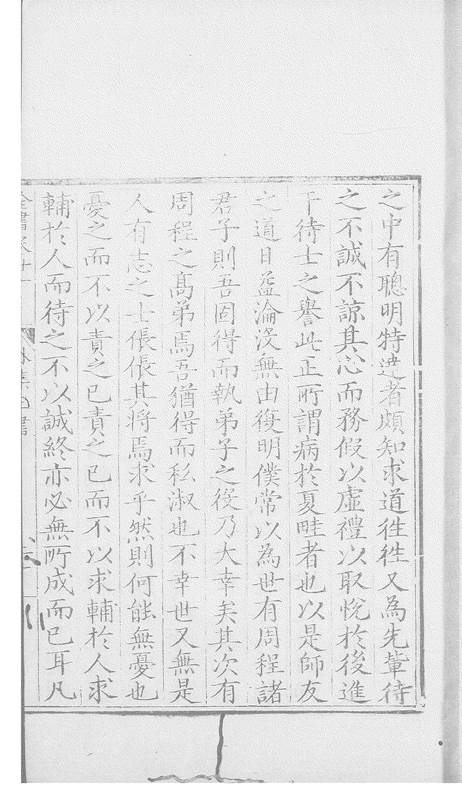 之中有聰明特達者頗知求道徃徃又為先輩待
之不誠不諒其心而務假以虛禮以取悅於後進
干待士之譽此正所謂病於夏畦者也以是師友
之道日益淪没無由復明僕常以為世有周程諸
君子則吾固得而執弟子之役乃大幸矣其次有
周程之髙弟焉吾猶得而私淑也不幸世又無是
人有志之士倀倀其將焉求乎然則何能無憂也
憂之而不以責之已責之已而不以求輔於人求
輔於人而待之不以誠終亦必無所成而已耳凡